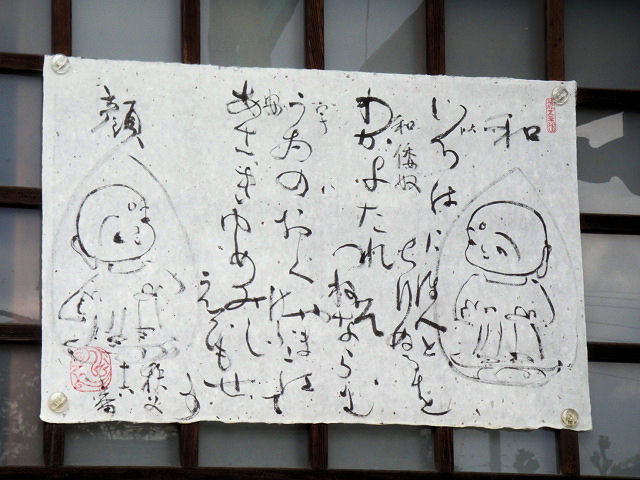 和
いろはにほへと
ちりぬるを
和倭奴
わかよたれそ
つねならむ
うゐのおくやまけふこえて
あさきゆめみし
ゑひもせす
顔
秩父